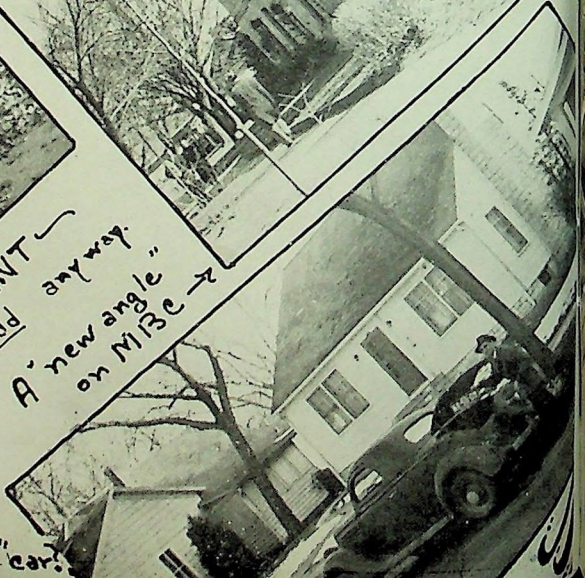 NT
anyway.
A "new angle"
on MBC
"car?